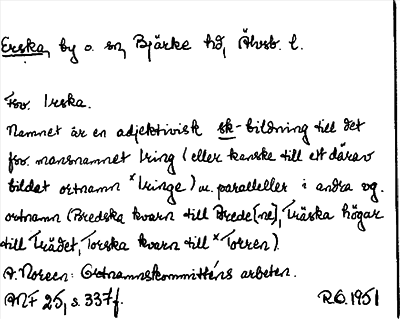 Erska, by o. sn, Bjärke hd, Älvsb. l.
Fsv. Irska.
Namnet är en adjektivisk sk-bildning till det
fsv. mansnamnet Iring (eller kanske till ett därav
bildat ortnamn *Iringe) m. paralleller i andra vg.
ortnamn (Bredska kvarn till Brede[ne], Träska högar
till Trädet, Torska kvarn till *Torren).
A. Noreen: Ortnamnskommitténs arbeten.
ANF 25, s. 337f. R.O. 1951